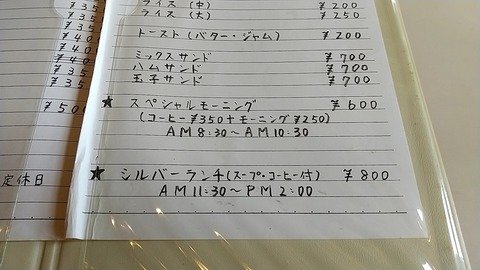 735
735
740
740
740
735
735
¥500
定休日
ライス(中) ¥200
ライス(大) ¥250
トースト(バター・ジャム) ¥200
ミックスサンド ¥700
ハムサンド ¥700
玉子サンド ¥700
★ スペシャルモーニング ¥600
(コーヒー¥350+モーニング¥250)
AM8:30〜AM10:30
★ シルバーランチ(スープ・コーヒー付) ¥800
AM11:30〜PM2:00